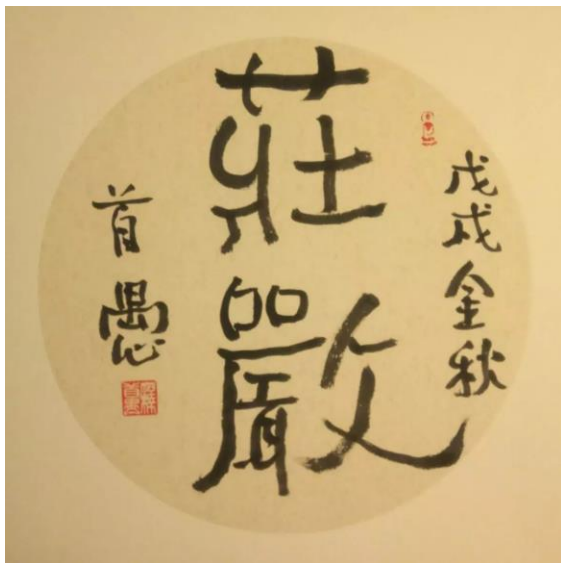 戊戌金秋
莊嚴
首愚